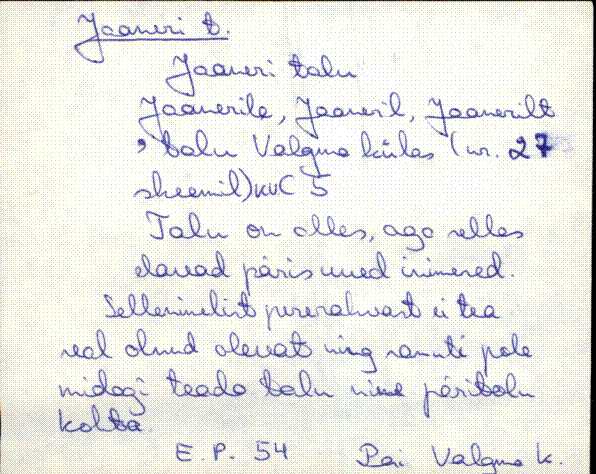 Jaaneri t.
Jaaneri talu
Jaanerile, Jaaneril, Jaanerilt
, talu Valgma külas (nr. 27
skeemil) KUC 5
Talu on alles, aga selles
elavad päris uued inimesed.
Sellenimelist pererahvast ei tea
seal olnud olevat ning samuti pole
midagi teada talu nime päritolu
kohta.
E. P. 54 Pai. Valgma k.